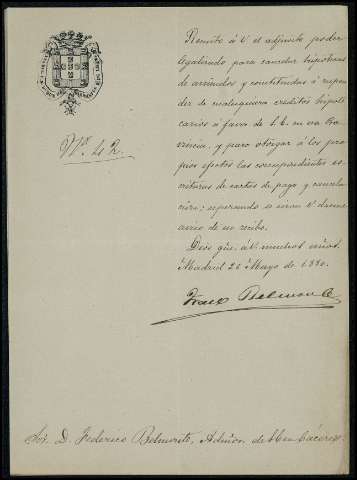 Remito á V. el adjunto poder
legalizado para cancelar hipotecas
de arriendos y constituidas á respon-
der de cualesquiera creditos hipote-
carios á favor de S. E. en esa Pro-
vincia, y para otorgar á los pro-
pios efectos las correspondientes es-
crituras de cartas de pago y cancela-
ciones; esperando se sirva V. darme
aviso de su recibo.
Dios gūe. á V. muchos años.
Madrid 26 Mayo de 1880.
Belmonte
Sor. D. Federico Belmonte, Admōr. de Cáceres.